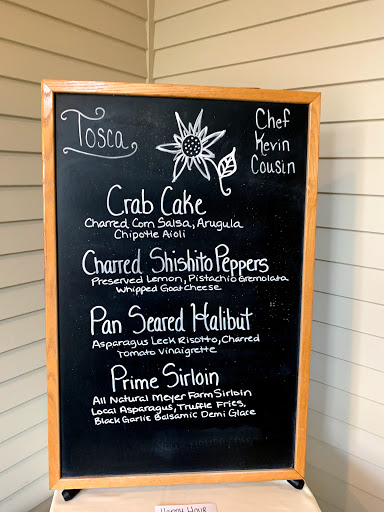 Tosca
Chef
Kevin
Cousin
Crab Cake
Charred Corn Salsa, Arugula
Chipotle Aioli
Charred Shishito Peppers
Preserved Lemon, Pistachio Gremolata
Whipped Goat Cheese
Pan Seared Halibut
Asparagus Leek Risotto, Charred
Tomato Vinaigrette
Prime Sirloin
All Natural Meyer Farm Sirloin
Local Asparagus, Truffle Fries,
Black Garlic Balsamic Demi Glace
Happy Hour